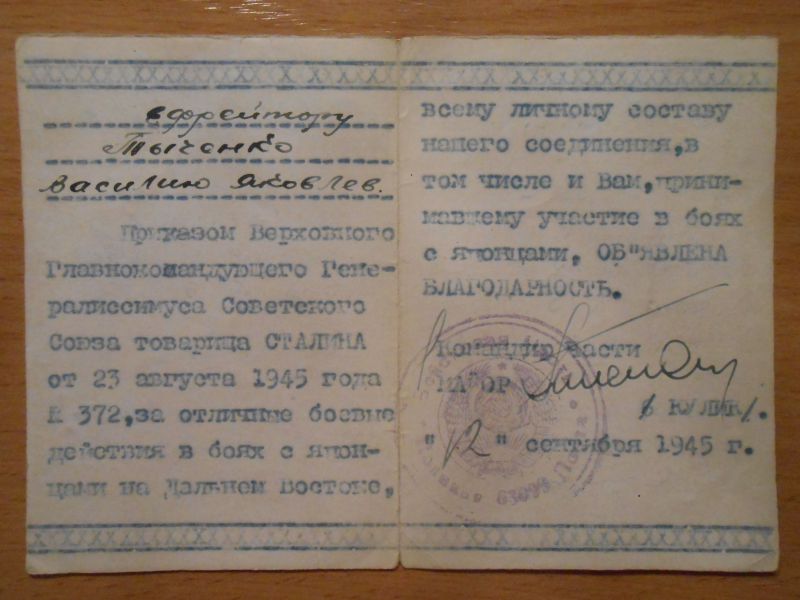 ефрейтору
Тыченко
Василию Яковлев.
Приказом Верховного
Главнокомандующего Гене-
ралиссимуса Советского
Союза товарища СТАЛИНА
от 23 августа 1945 года
№ 372,за отличные боевые
действия в боях с япон-
цами на Дальнем Востоке,
всему личному составу
нашего соединения,в
том числе и Вам,прини-
мавшему участие в боях
с японцами, ОБ"ЯВЛЕНА
БЛАГОДАРНОСТЬ.
Командир части
МАЙОР
/ КУЛИК/.
"12" сентября 1945 г.